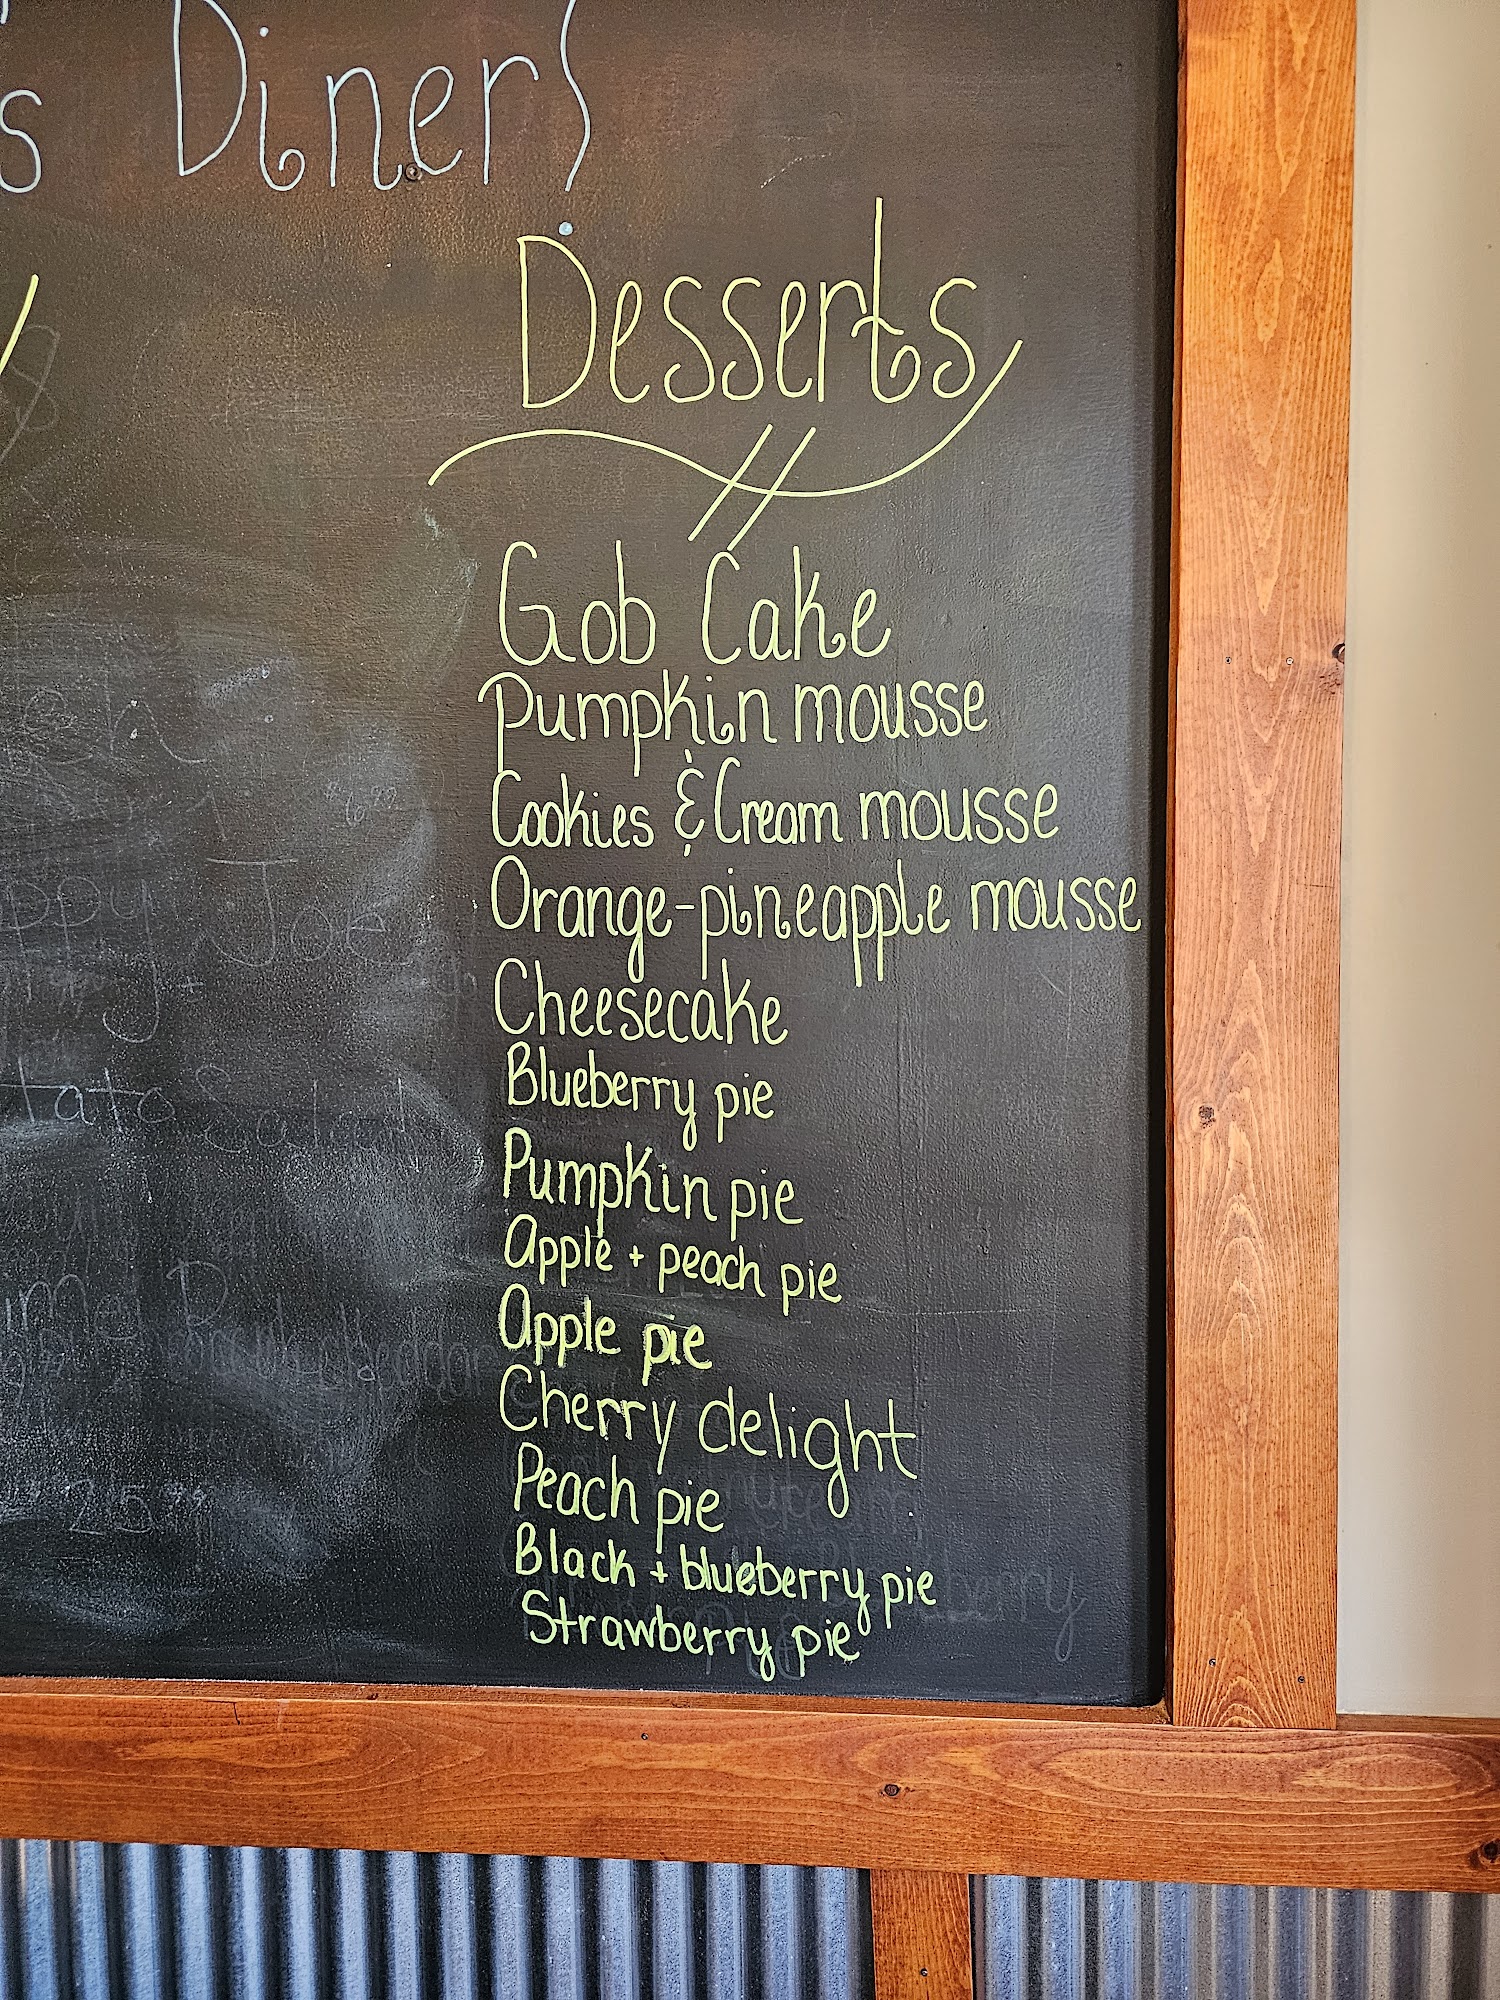 s Diner!
Desserts
Gob Cake
Pumpkin mousse
Cookies & Cream mousse
Orange-pineapple mousse
Cheesecake
Blueberry pie
Pumpkin pie
Apple + peach pie
Apple pie
Cherry delight
Peach pie
Black + blueberry pie
Strawberry pie